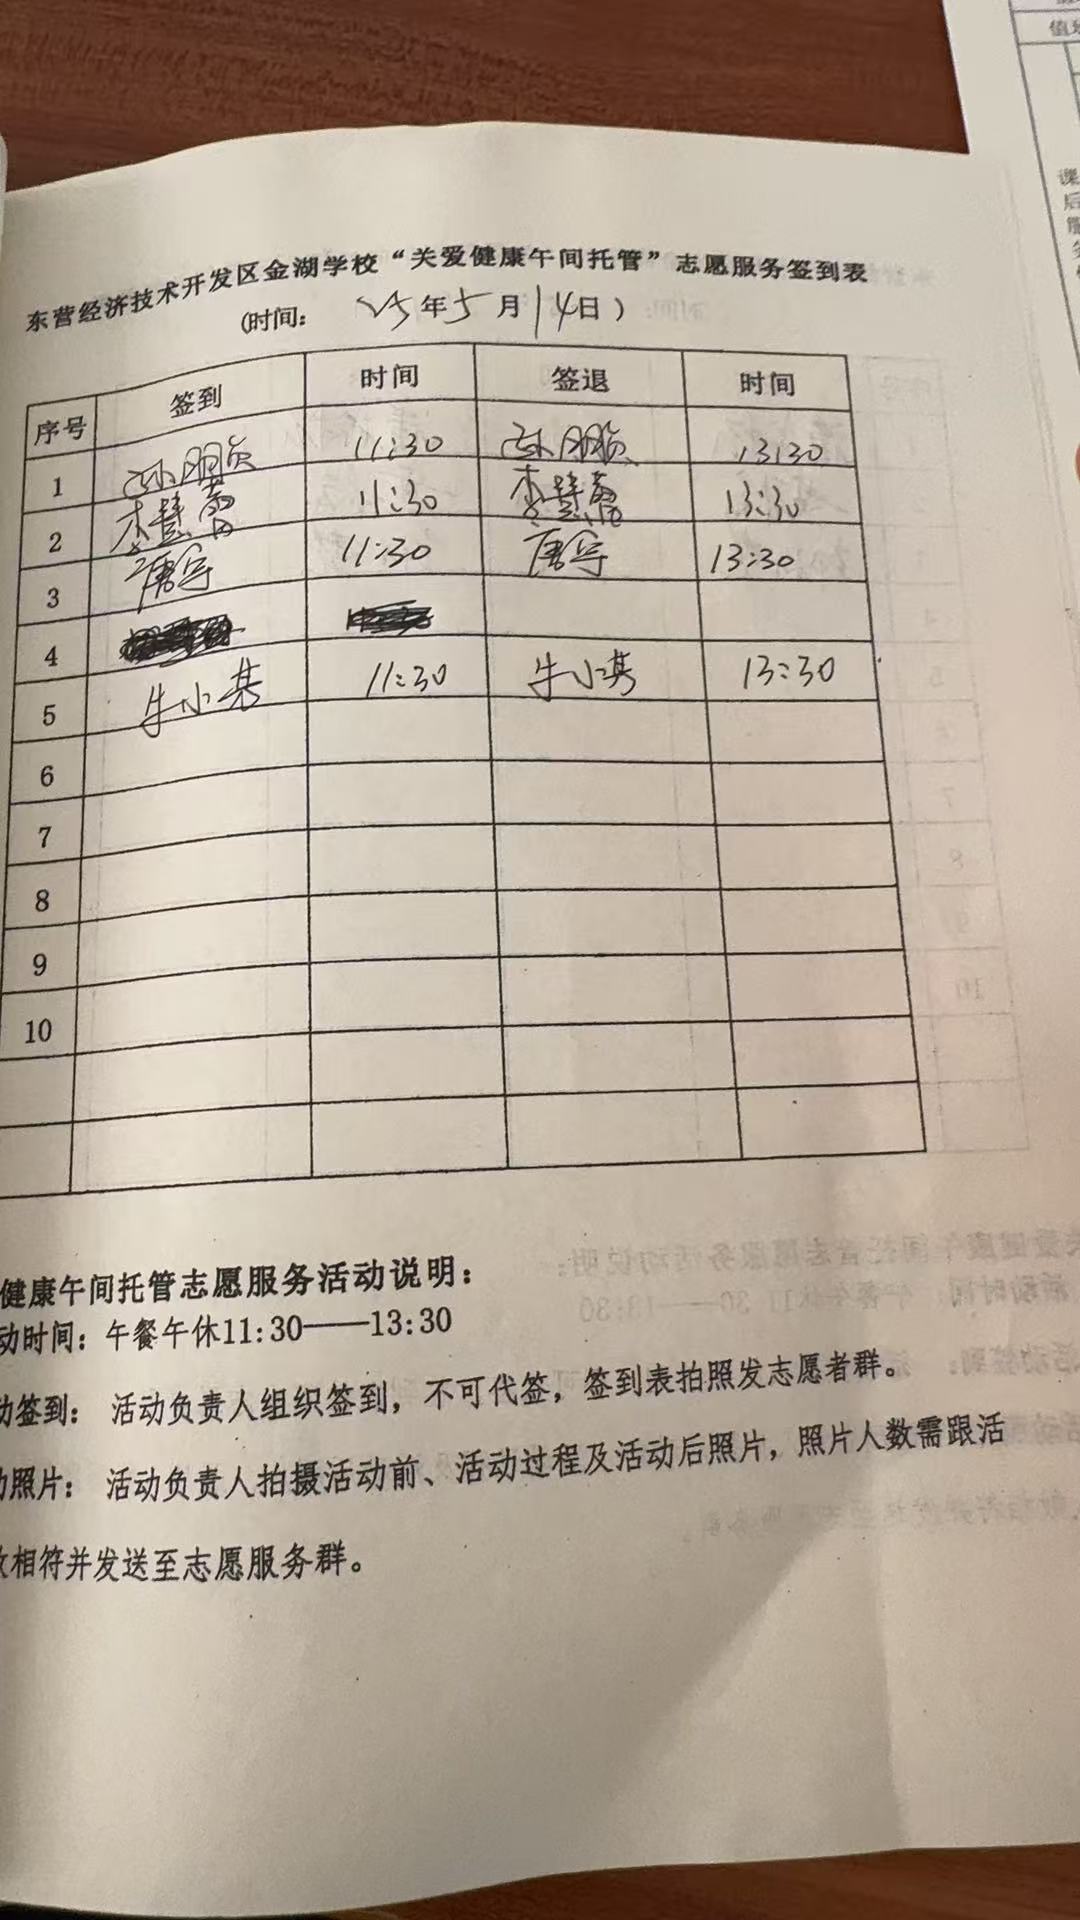 东营经济技术开发区金湖学校“关爱健康午间托管”志愿服务签到表
(时间： 25年5月14日)
序号 签到 时间 签退 时间
1 11:30 13:30
2 李慧 11:30 李慧 13:30
3 唐宇 11:30 唐宇 13:30
4
5 牛小琪 11:30 牛小琪 13:30
6
7
8
9
10
健康午间托管志愿服务活动说明：
动时间：午餐午休11:30——13:30
动签到： 活动负责人组织签到，不可代签，签到表拍照发志愿者群。
照片： 活动负责人拍摄活动前、活动过程及活动后照片，照片人数需跟活
相符并发送至志愿服务群。
值
课
后